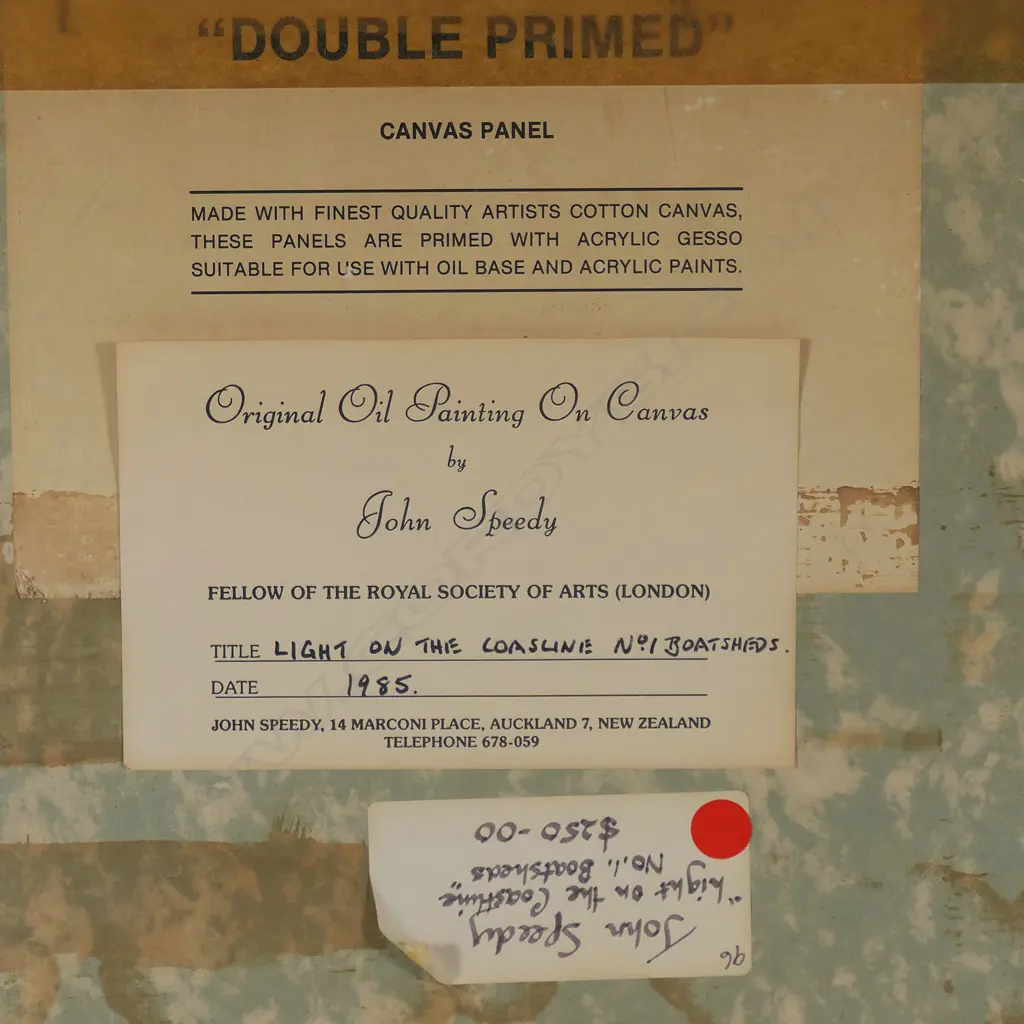 "DOUBLE PRIMED"
CANVAS PANEL
MADE WITH FINEST QUALITY ARTISTS COTTON CANVAS,
THESE PANELS ARE PRIMED WITH ACRYLIC GESSO
SUITABLE FOR USE WITH OIL BASE AND ACRYLIC PAINTS.
Original Oil Painting On Canvas
by
John Speedy
FELLOW OF THE ROYAL SOCIETY OF ARTS (LONDON)
TITLE LIGHT ON THE COASLINE Nº1 BOATSHEDS.
DATE 1985.
JOHN SPEEDY, 14 MARCONI PLACE, AUCKLAND 7, NEW ZEALAND
TELEPHONE 678-059
96
John Speedy
"Light on the Coastline"
No.1, Boatsheds
$250-00